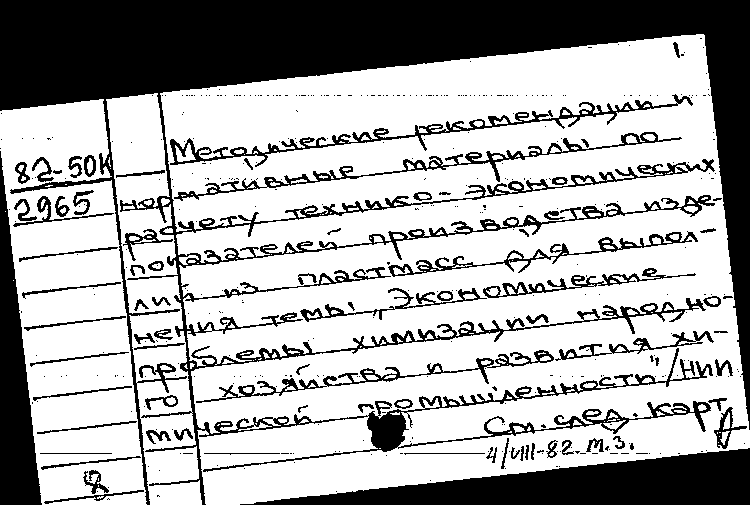 1.
82-50К
2965
Методические рекомендации и
нормативные материалы по
расчету технико-экономических
показателей производства изде-
лий из пластмасс для выпол-
нения темы „Экономические
проблемы химизации народно-
го хозяйства и развития хи-
мической промышленности"/НИИ
См. след. карт
4/VIII-82 м.з.
8